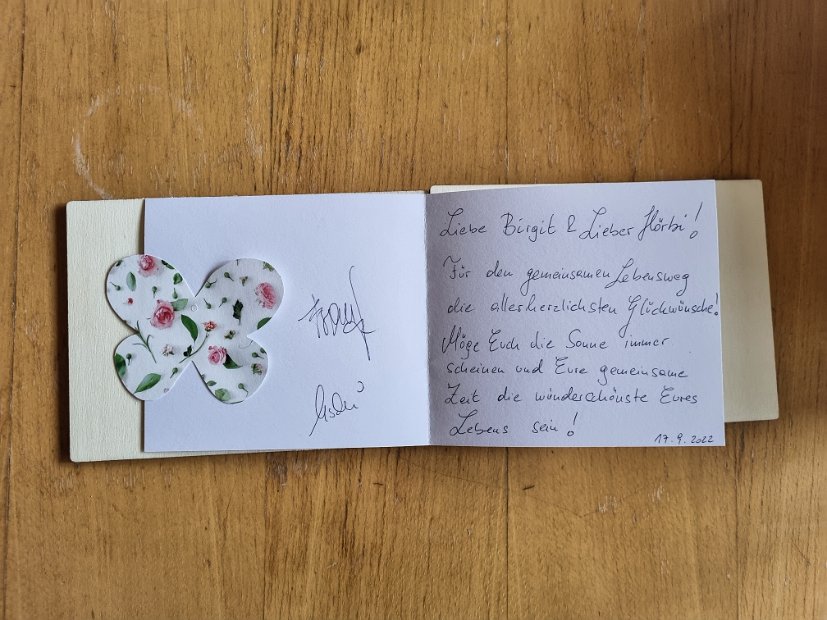 Liebe Birgit & Lieber Hörbi!
Für den gemeinsamen Lebensweg
die allerherzlichsten Glückwünsche!
Möge Euch die Sonne immer
scheinen und Eure gemeinsame
Zeit die wunderschönste Eures
Lebens sein!
17.9.2022